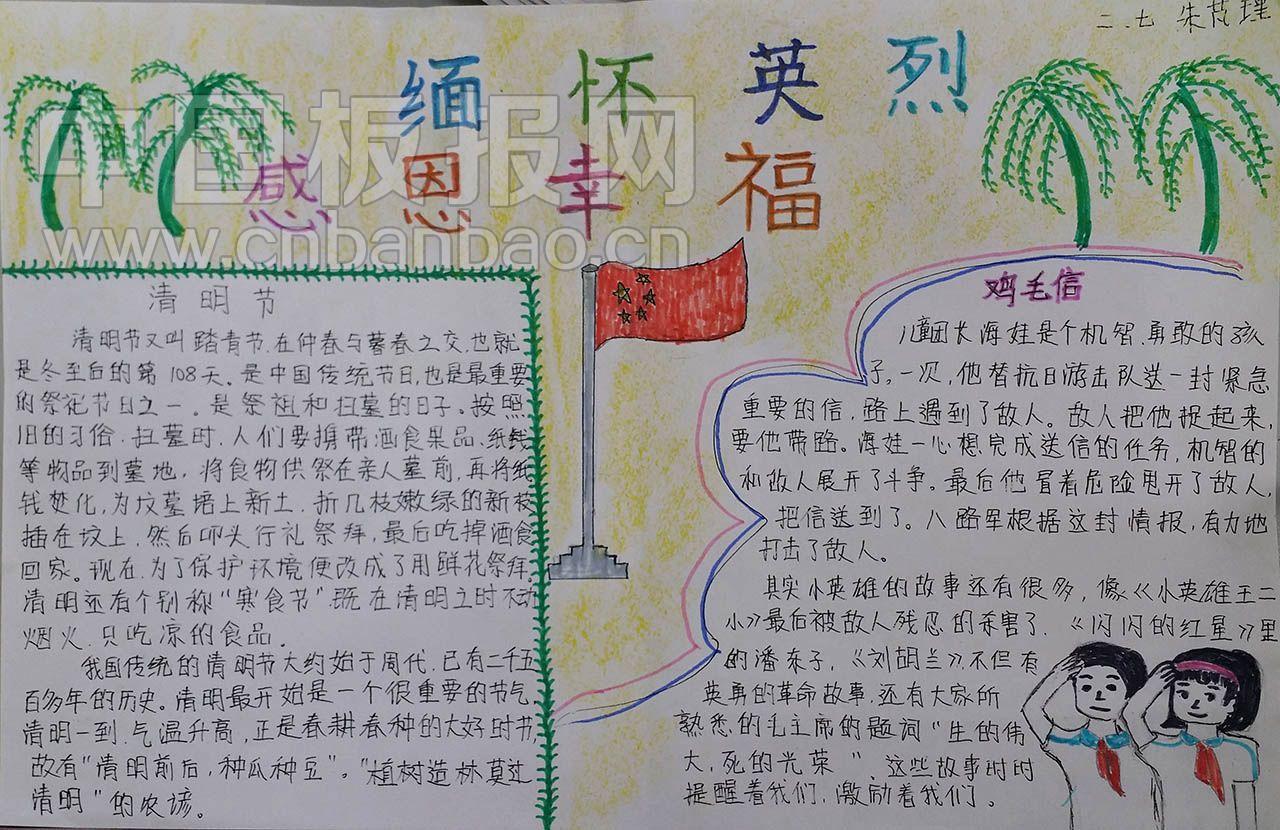 二.七 朱芪理
缅怀英烈
感恩幸福
中国板报网
www.cnbanbao.cn
清明节
清明节又叫踏青节,在仲春与暮春之交,也就
是冬至后的第108天。是中国传统节日,也是最重要
的祭祀节日之一。是祭祖和扫墓的日子。按照
旧的习俗,扫墓时,人们要携带酒食果品、纸钱
等物品到墓地,将食物供祭在亲人墓前,再将纸
钱焚化,为坟墓培上新土,折几枝嫩绿的新枝
插在坟上,然后叩头行礼祭拜,最后吃掉酒食
回家。现在,为了保护环境便改成了用鲜花祭拜.
清明还有个别称“寒食节”,既在清明立时不动
烟火,只吃凉的食品。
我国传统的清明节大约始于周代,已有二千五
百多年的历史。清明最开始是一个很重要的节气,
清明一到,气温升高,正是春耕春种的大好时节,
故有“清明前后,种瓜种豆”。“植树造林莫过
清明”的农谚。
鸡毛信
儿童团长海娃是个机智,勇敢的孩
子,一次,他替抗日游击队送一封紧急
重要的信,路上遇到了敌人。敌人把他捉起来,
要他带路。海娃一心想完成送信的任务,机智的
和敌人展开了斗争。最后他冒着危险甩开了敌人,
把信送到了。八路军根据这封情报,有力地
打击了敌人。
其实小英雄的故事还有很多,像《小英雄王二
小》最后被敌人残忍的杀害了.《闪闪的红星》里
的潘东子,《刘胡兰》,不但有
英勇的革命故事,还有大家所
熟悉的毛主席的题词“生的伟
大,死的光荣”,这些故事时时
提醒着我们,激励着我们。